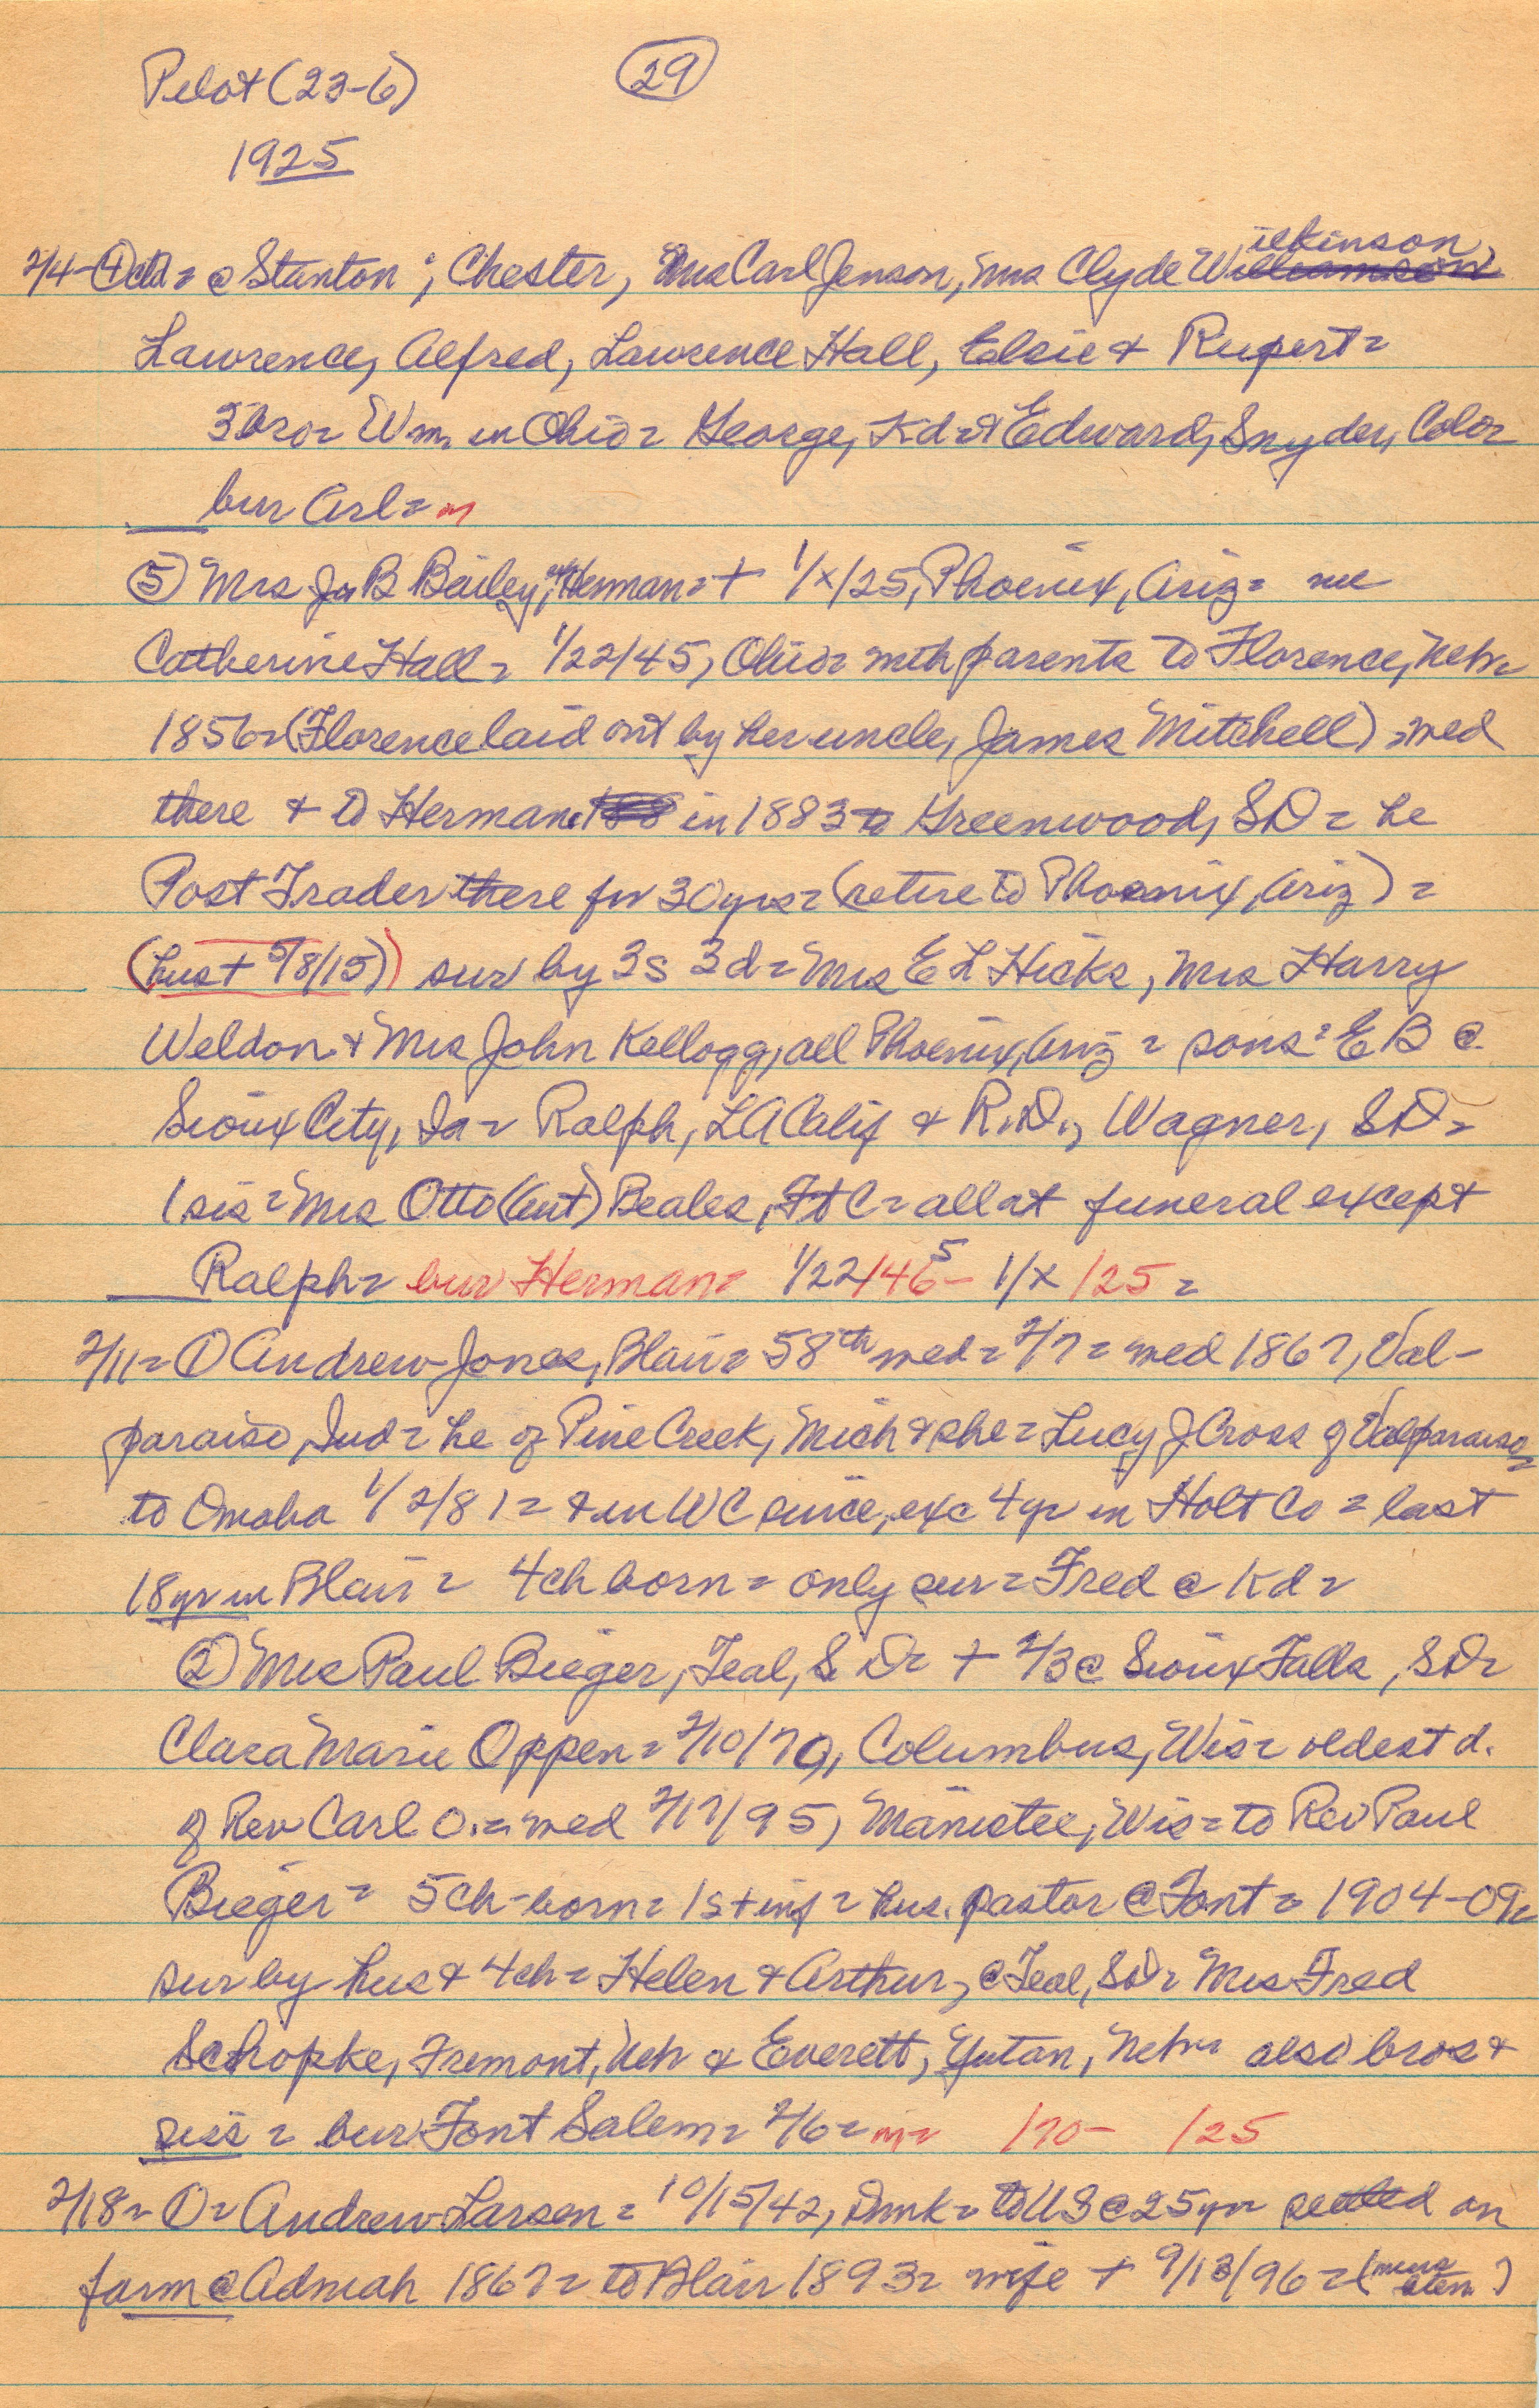 Pilot (23-6)
29
1925
2/4-④ cld = @ Stanton; Chester, Mrs Carl Jenson, Mrs Clyde Wilkinson,
Lawrence, Alfred, Lawrence Hall, Elsie & Rupert =
3 bro = Wm in Ohio = George, Kd = & Edward, Snyder, Colo =
bur Arl = m
⑤ Mrs Jas B Bailey, Herman = + 1/x/25, Phoenix, Ariz = nee
Catherine Hall = 1/22/45, Ohio = with parents to Florence, Nebr =
1856 = (Florence laid out by her uncle, James Mitchell) = wed
there & to Herman in 1883 = Greenwood, SD = he
Post Trader there for 30 yrs = (retire to Phoenix, Ariz) =
(hus + 5/8/15) sur by 3s 3d = Mrs E L Hicks, Mrs Harry
Weldon & Mrs John Kellogg, all Phoenix, Ariz = sons = E B @
Sioux City, Ia = Ralph, LA Calif & R.D., Wagner, SD =
1 sis = Mrs Otto (Aut) Beales, Ft C = all at funeral except
Ralph = bur Herman = 1/22/46 5 - 1/x /25 =
2/11 = ① Andrew Jones, Blair = 58th wed = 2/7 = wed 1867, Val-
paraiso, Ind = he of Pine Creek, Mich & she = Lucy J Cross of Valparaiso =
to Omaha 1/2/81 = & in WC since, exc 4 yr in Holt Co = last
18 yr in Blair = 4 ch born = only sur = Fred @ Kd =
② Mrs Paul Bieger, Teal, S D = + 2/3 @ Sioux Falls, SD =
Clara Marie Oppen = 2/10/70, Columbus, Wis = oldest d.
of Rev Carl O. = wed 2/17/95, Manistee, Wis = to Rev Paul
Bieger = 5 ch - born = 1 s + inf = hus. pastor @ Font = 1904-09 =
sur by hus & 4 ch = Helen & Arthur, @ Teal, SD = Mrs Fred
Schopke, Fremont, Neb & Everett, Yutan, Nebr = also bros &
siss = bur Font Salem = 2/6 = m = /70 - /25
2/18 = ① = Andrew Larsen = 10/15/42, Dnmk = to US @ 25 yr = settled on
farm @ Admah 1867 = to Blair 1893 = wife + 9/13/96 = (news item?)